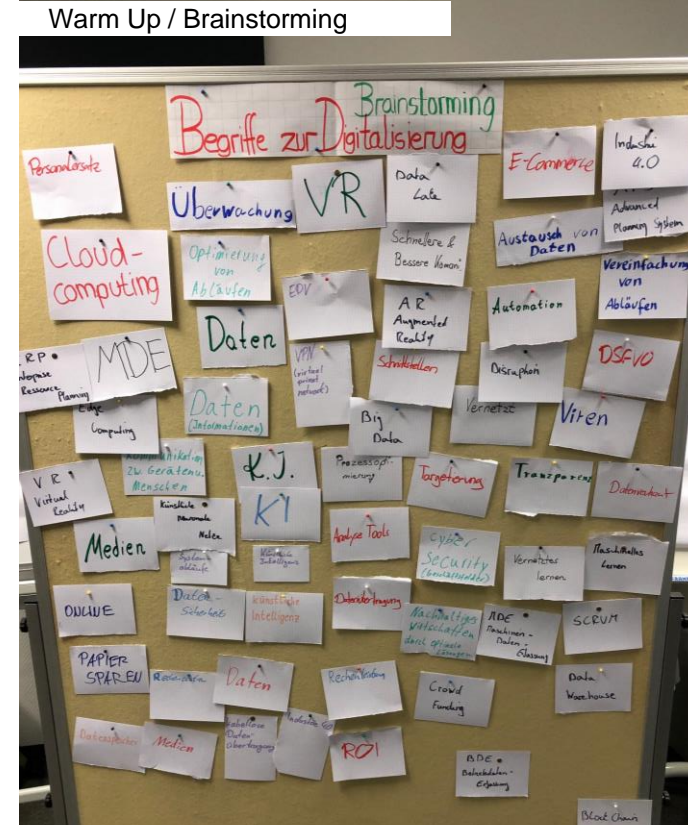 Warm Up / Brainstorming
Brainstorming
Begriffe zur Digitalisierung
Personalersatz
Überwachung
VR
Data
Lake
E-Commerce
Industrie
4.0
Advanced
Planning System
Cloud-
computing
Optimierung
von
Abläufen
EDV
Schnellere &
Bessere
Austausch von
Daten
Vereinfachung
von
Abläufen
Daten
AR
Augmented
Reality
Automation
RP
Ressource
Planning
MDE
VPN
(virtual
privat
network)
Schnittstellen
Disruption
DSGVO
Edge
Computing
Daten
(Informationen)
Big
Data
Vernetzt
Viren
Kommunikation
zw. Geräten u.
Menschen
K.I.
Prozessopti-
mierung
Targetierung
Transparenz
VR
Virtual
Reality
Künstliche
neuronale
Netze
KI
Analyse Tools
Cyber
Security
Vernetztes
lernen
Maschinelles
Lernen
Medien
System
abläufe
Künstliche
Intelligenz
ONLINE
Daten-
Sicherheit
künstliche
Intelligenz
Datenübertragung
Nachhaltiges
wirtschaften
MDE
Maschinen-
Daten-
Erfassung
SCRUM
PAPIER
SPAREN
Daten
Rechenleistung
Crowd
Funding
Data
Warehouse
Datenspeicher
Medien
Kabellose
Daten
übertragung
ROI
BDE
Betriebsdaten-
Erfassung
Block Chain